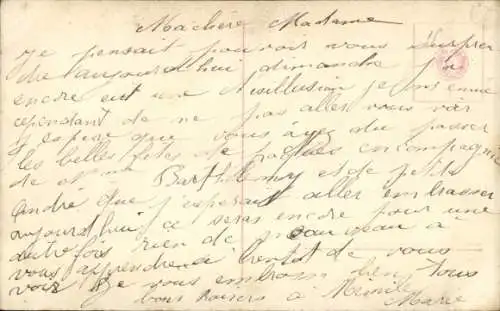 Machère Madame
je pensait pouvoir vous surpren
dre aujourd'hui dimanche j'ai
encore eut une disillusion je m'ennue
cependant de ne pas aller vous voir
j'espère que vous avez du passer
les belles fêtes de Paques en compagnie
de Mme Barthélemy et de petit
andré que j'esperait aller embrasser
aujourd'hui ce seras encore pour une
autrefois rien de nouveau à
vous apprendre à bientot de vous
voir je vous embrasse bien tous
bons baisers à Mimile
Marie